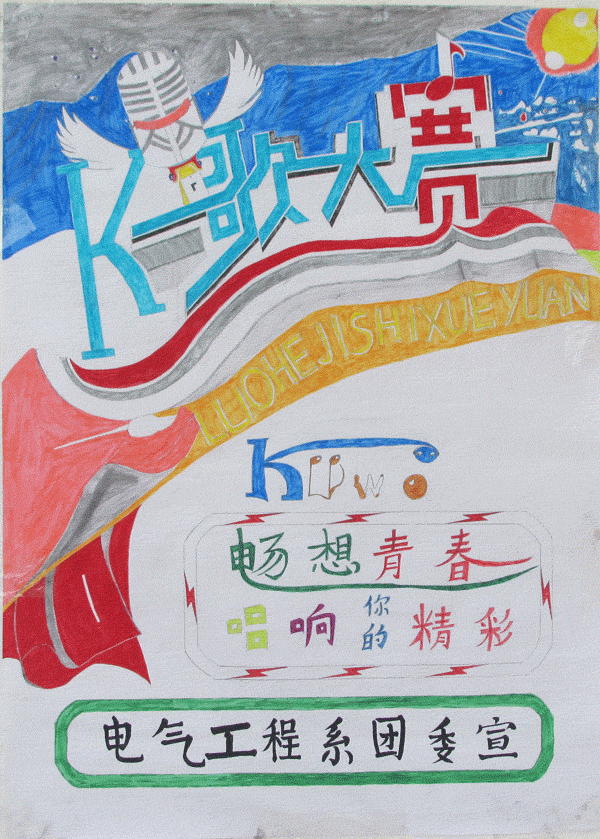 K歌大赛
LUOHEJISHIXUEYUAN
KUWO
畅想青春
唱响你的精彩
电气工程系团委宣